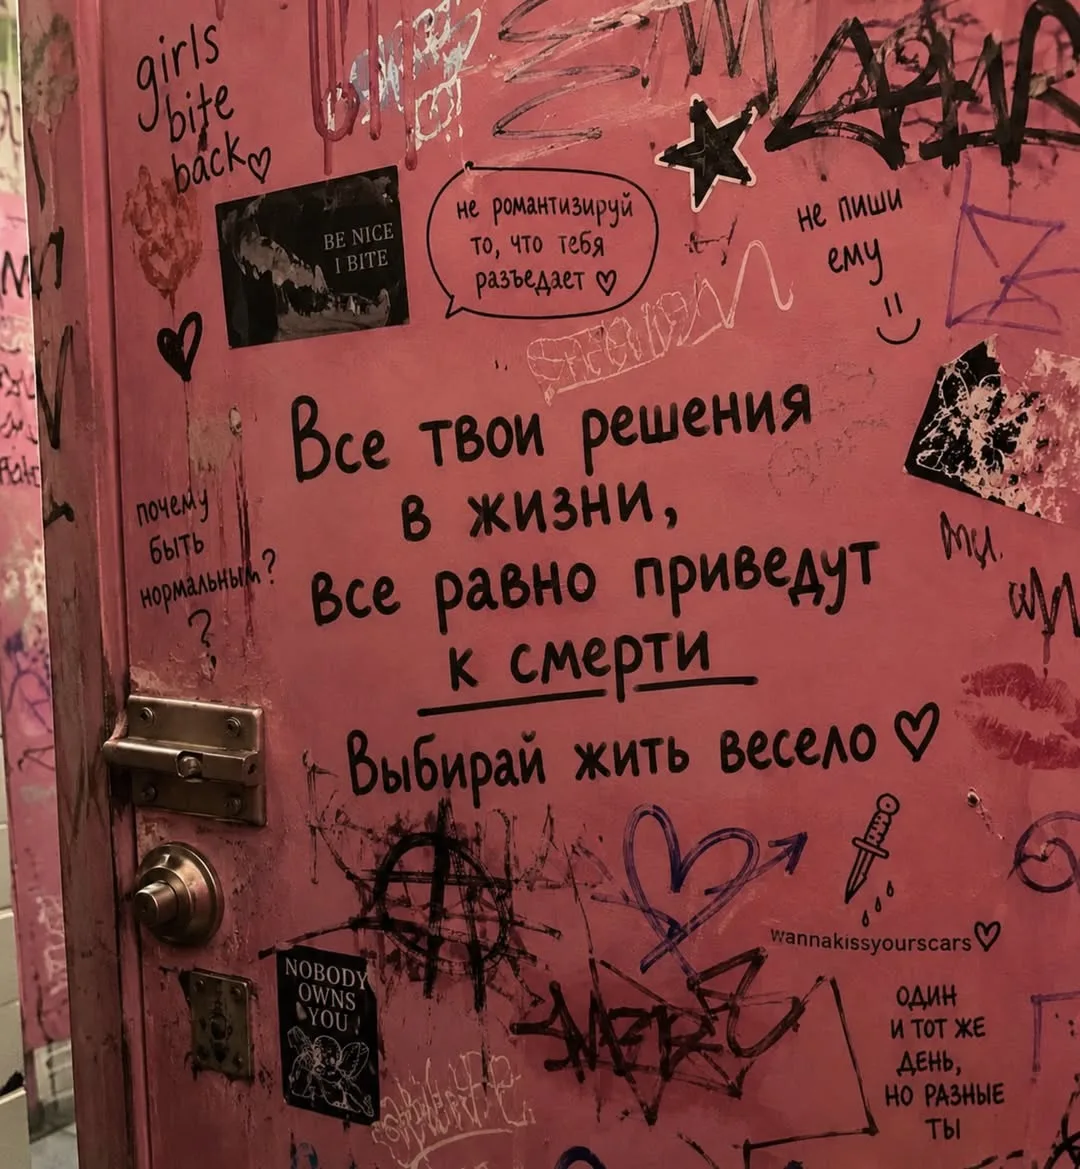 girls
bite
back
BE NICE
I BITE
не романтизируй
то, что тебя
разъедает
не пиши
ему
Все твои решения
в жизни,
все равно приведут
к смерти
Выбирай жить весело
почему
быть
нормальным?
?
wannakissyourscars
NOBODY
OWNS
YOU
ОДИН
И ТОТ ЖЕ
ДЕНЬ,
НО РАЗНЫЕ
ТЫ